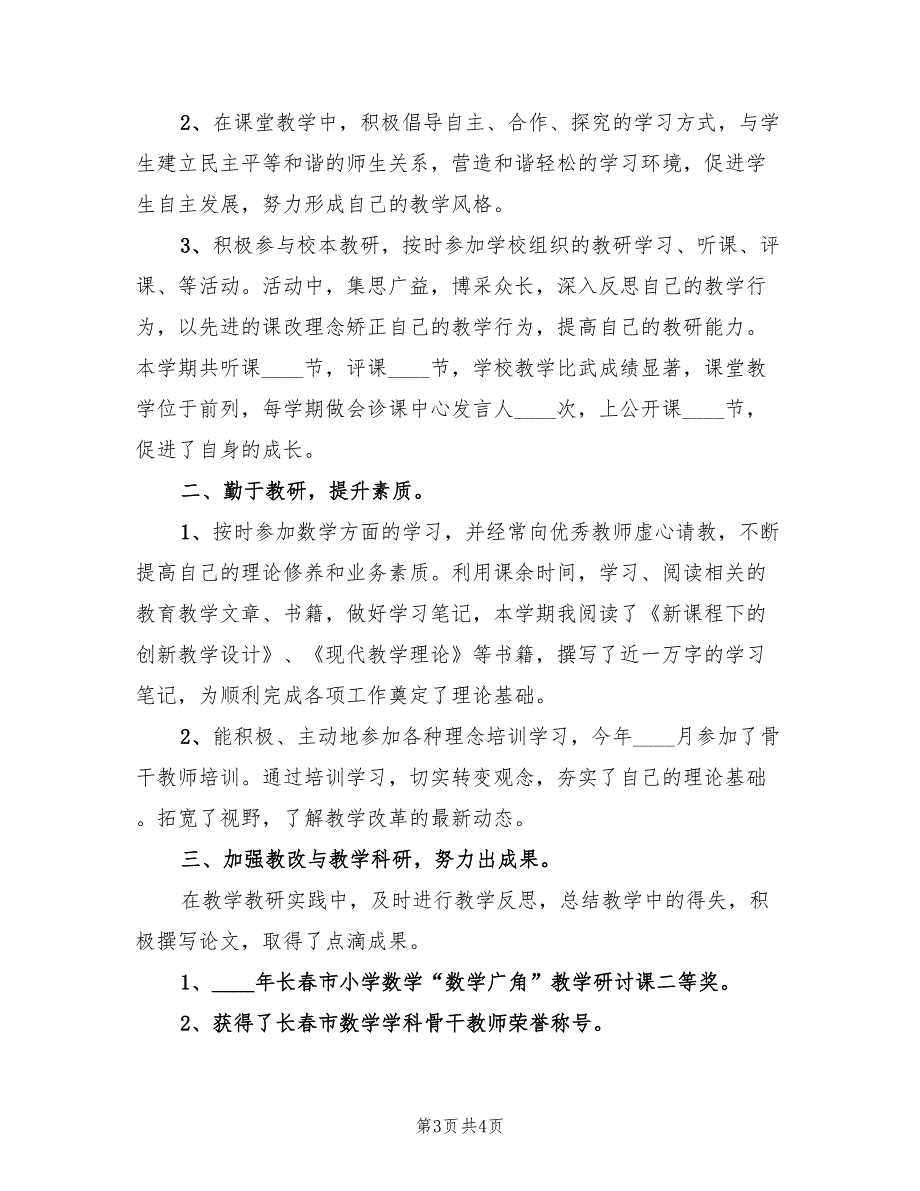 2、在课堂教学中，积极倡导自主、合作、探究的学习方式，与学
生建立民主平等和谐的师生关系，营造和谐轻松的学习环境，促进学
生自主发展，努力形成自己的教学风格。
3、积极参与校本教研，按时参加学校组织的教研学习、听课、评
课、等活动。活动中，集思广益，博采众长，深入反思自己的教学行
为，以先进的课改理念矫正自己的教学行为，提高自己的教研能力。
本学期共听课____节，评课____节，学校教学比武成绩显著，课堂教
学位于前列，每学期做会诊课中心发言人____次，上公开课____节，
促进了自身的成长。
二、勤于教研，提升素质。
1、按时参加数学方面的学习，并经常向优秀教师虚心请教，不断
提高自己的理论修养和业务素质。利用课余时间，学习、阅读相关的
教育教学文章、书籍，做好学习笔记，本学期我阅读了《新课程下的
创新教学设计》、《现代教学理论》等书籍，撰写了近一万字的学习
笔记，为顺利完成各项工作奠定了理论基础。
2、能积极、主动地参加各种理念培训学习，今年____月参加了骨
干教师培训。通过培训学习，切实转变观念，夯实了自己的理论基础
。拓宽了视野，了解教学改革的最新动态。
三、加强教改与教学科研，努力出成果。
在教学教研实践中，及时进行教学反思，总结教学中的得失，积
极撰写论文，取得了点滴成果。
1、____年长春市小学数学“数学广角”教学研讨课二等奖。
2、获得了长春市数学学科骨干教师荣誉称号。
第3页 共4页